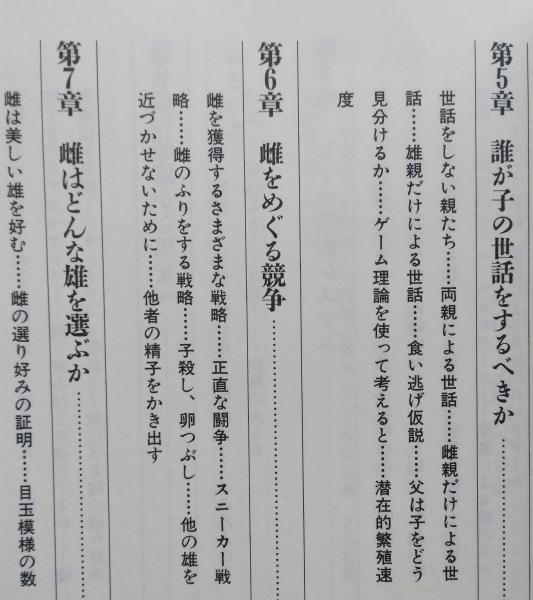 第5章　誰が子の世話をするべきか……
世話をしない親たち……両親による世話……雌親だけによる世
話……雄親だけによる世話……食い逃げ仮説……父は子をどう
見分けるか……ゲーム理論を使って考えると……潜在的繁殖速
度
第6章　雌をめぐる競争……
雌を獲得するさまざまな戦略……正直な闘争……スニーカー戦
略……雌のふりをする戦略……子殺し、卵つぶし……他の雄を
近づかせないために……他者の精子をかき出す
第7章　雌はどんな雄を選ぶか……
雌は美しい雄を好む……雌の選り好みの証明……目玉模様の数